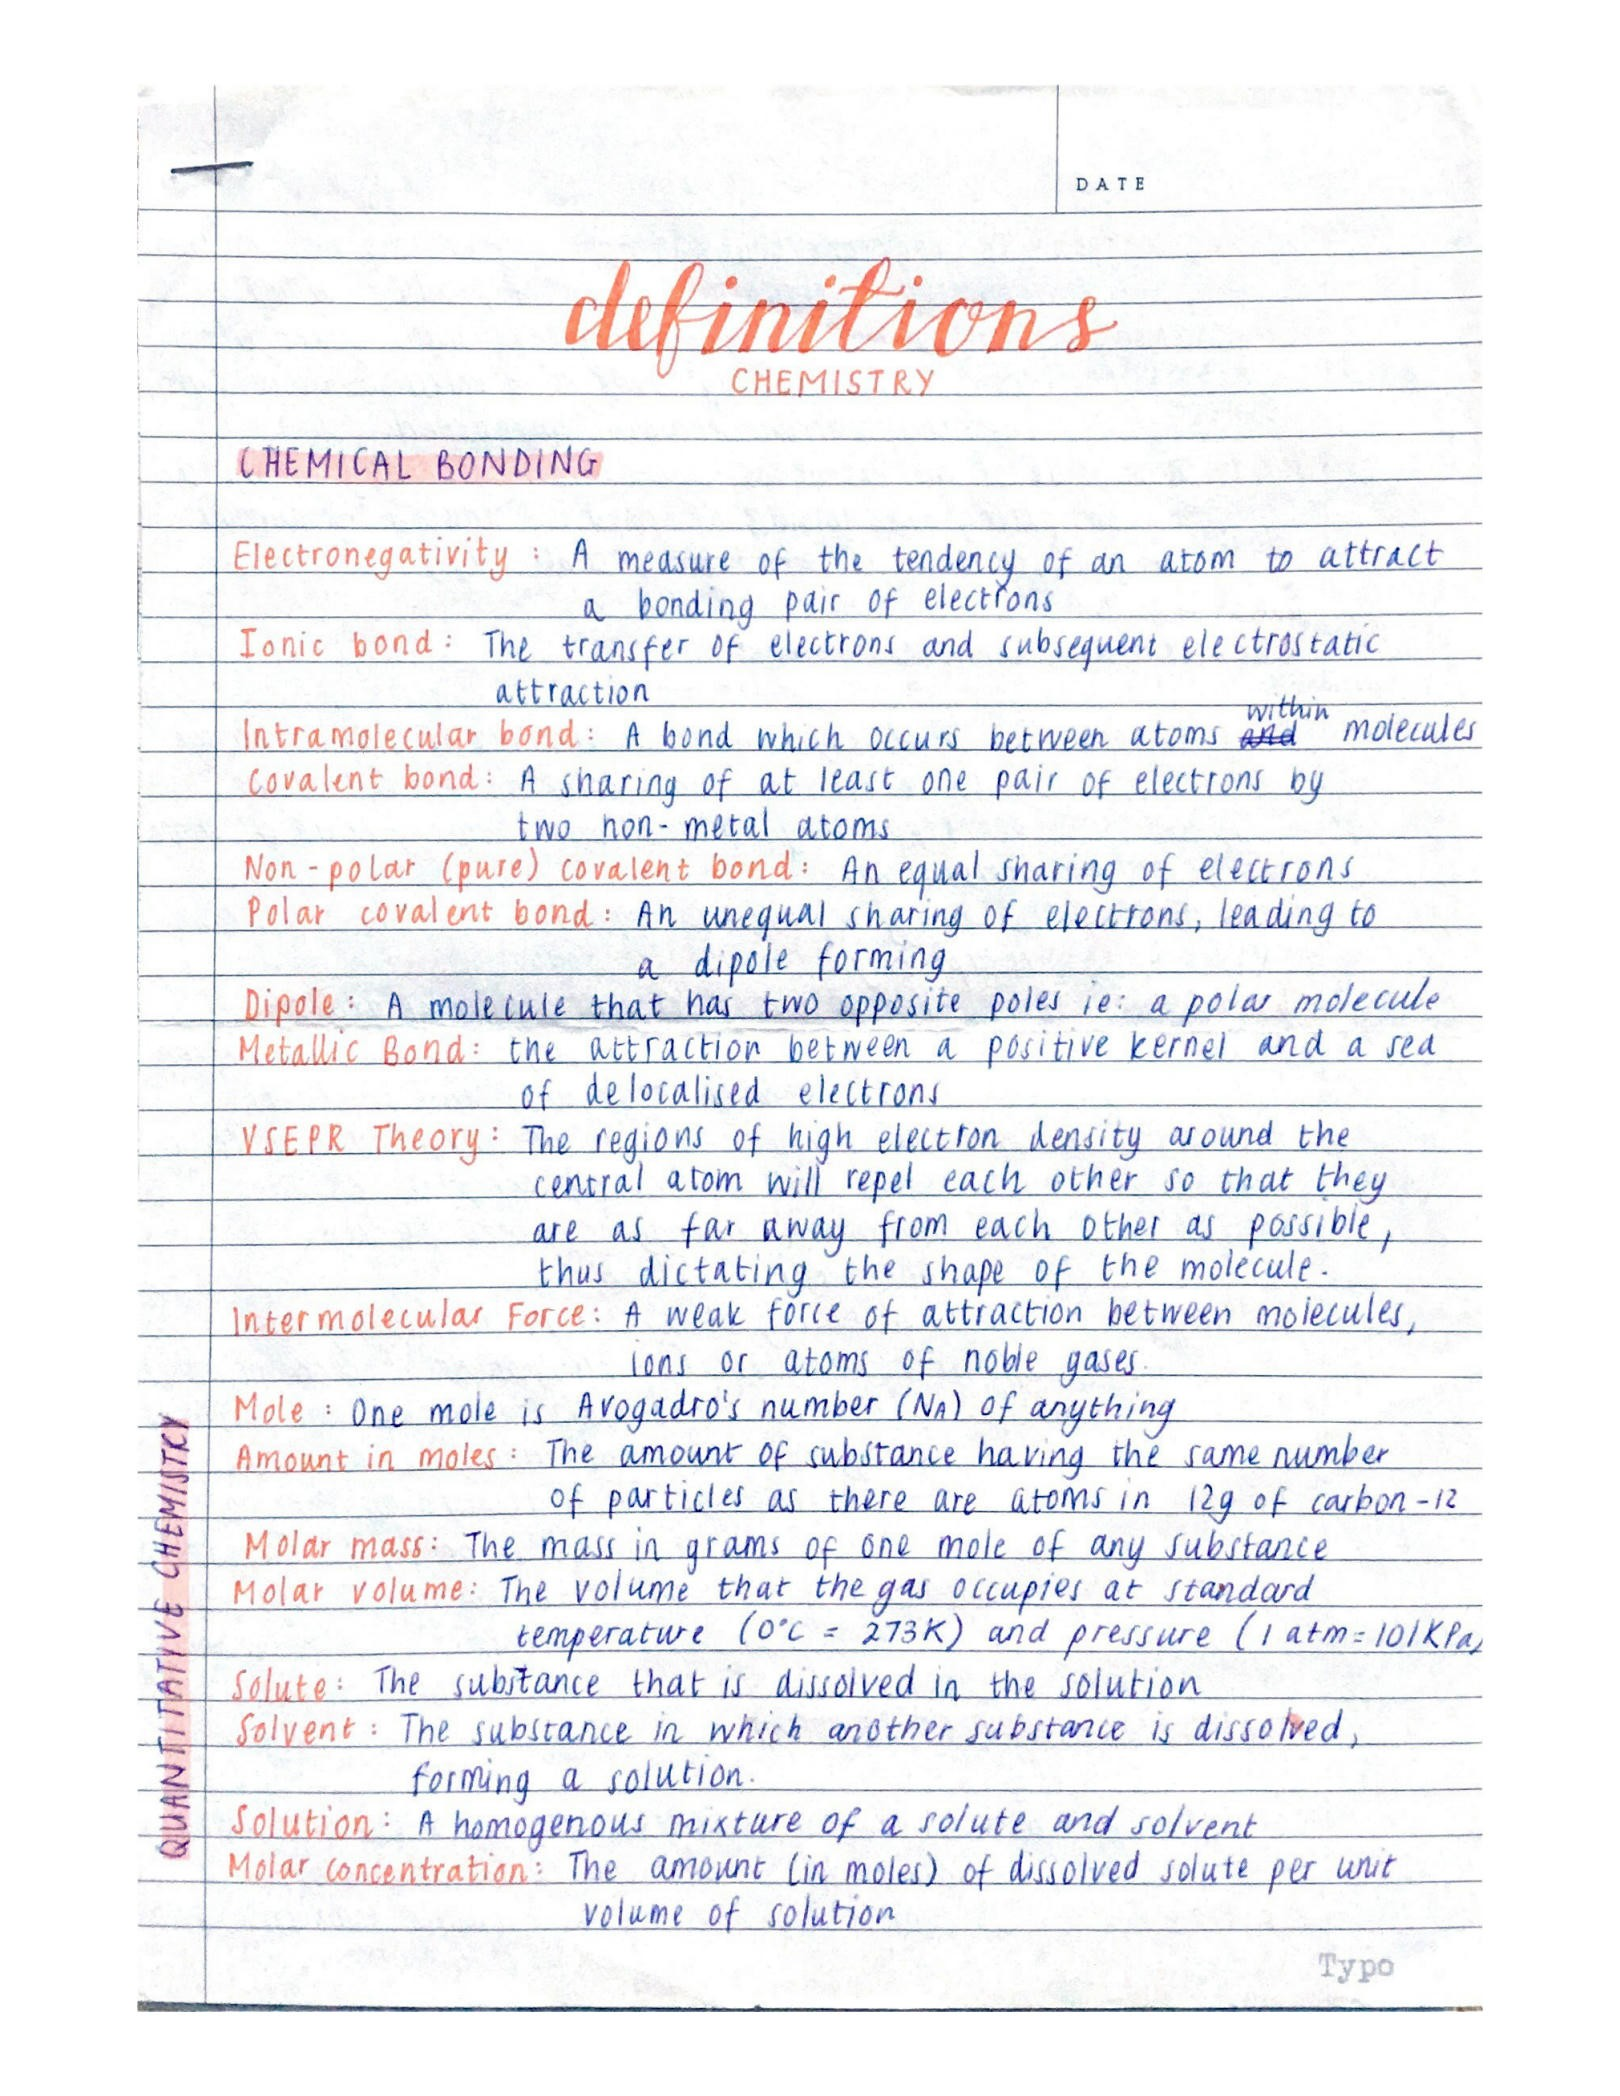 DATE
definitions
CHEMISTRY
CHEMICAL BONDING
Electronegativity : A measure of the tendency of an atom to attract
a bonding pair of electrons
Ionic bond : The transfer of electrons and subsequent electrostatic
attraction
within
Intramolecular bond : A bond which occurs between atoms and molecules
Covalent bond : A sharing of at least one pair of electrons by
two non-metal atoms
Non-polar (pure) covalent bond : An equal sharing of electrons
Polar covalent bond : An unequal sharing of electrons, leading to
a dipole forming
Dipole : A molecule that has two opposite poles ie: a polar molecule
Metallic Bond : the attraction between a positive kernel and a sea
of delocalised electrons
VSEPR Theory : The regions of high electron density around the
central atom will repel each other so that they
are as far away from each other as possible,
thus dictating the shape of the molecule.
Intermolecular Force : A weak force of attraction between molecules,
ions or atoms of noble gases.
QUANTITATIVE CHEMISTRY
Mole : One mole is Avogadro's number (NA) of anything
Amount in moles : The amount of substance having the same number
of particles as there are atoms in 12g of carbon-12
Molar mass : The mass in grams of one mole of any substance
Molar volume : The volume that the gas occupies at standard
temperature (0°C = 273K) and pressure (1 atm = 101KPa)
Solute : The substance that is dissolved in the solution
Solvent : The substance in which another substance is dissolved,
forming a solution.
Solution : A homogenous mixture of a solute and solvent
Molar concentration : The amount (in moles) of dissolved solute per unit
volume of solution
Typo